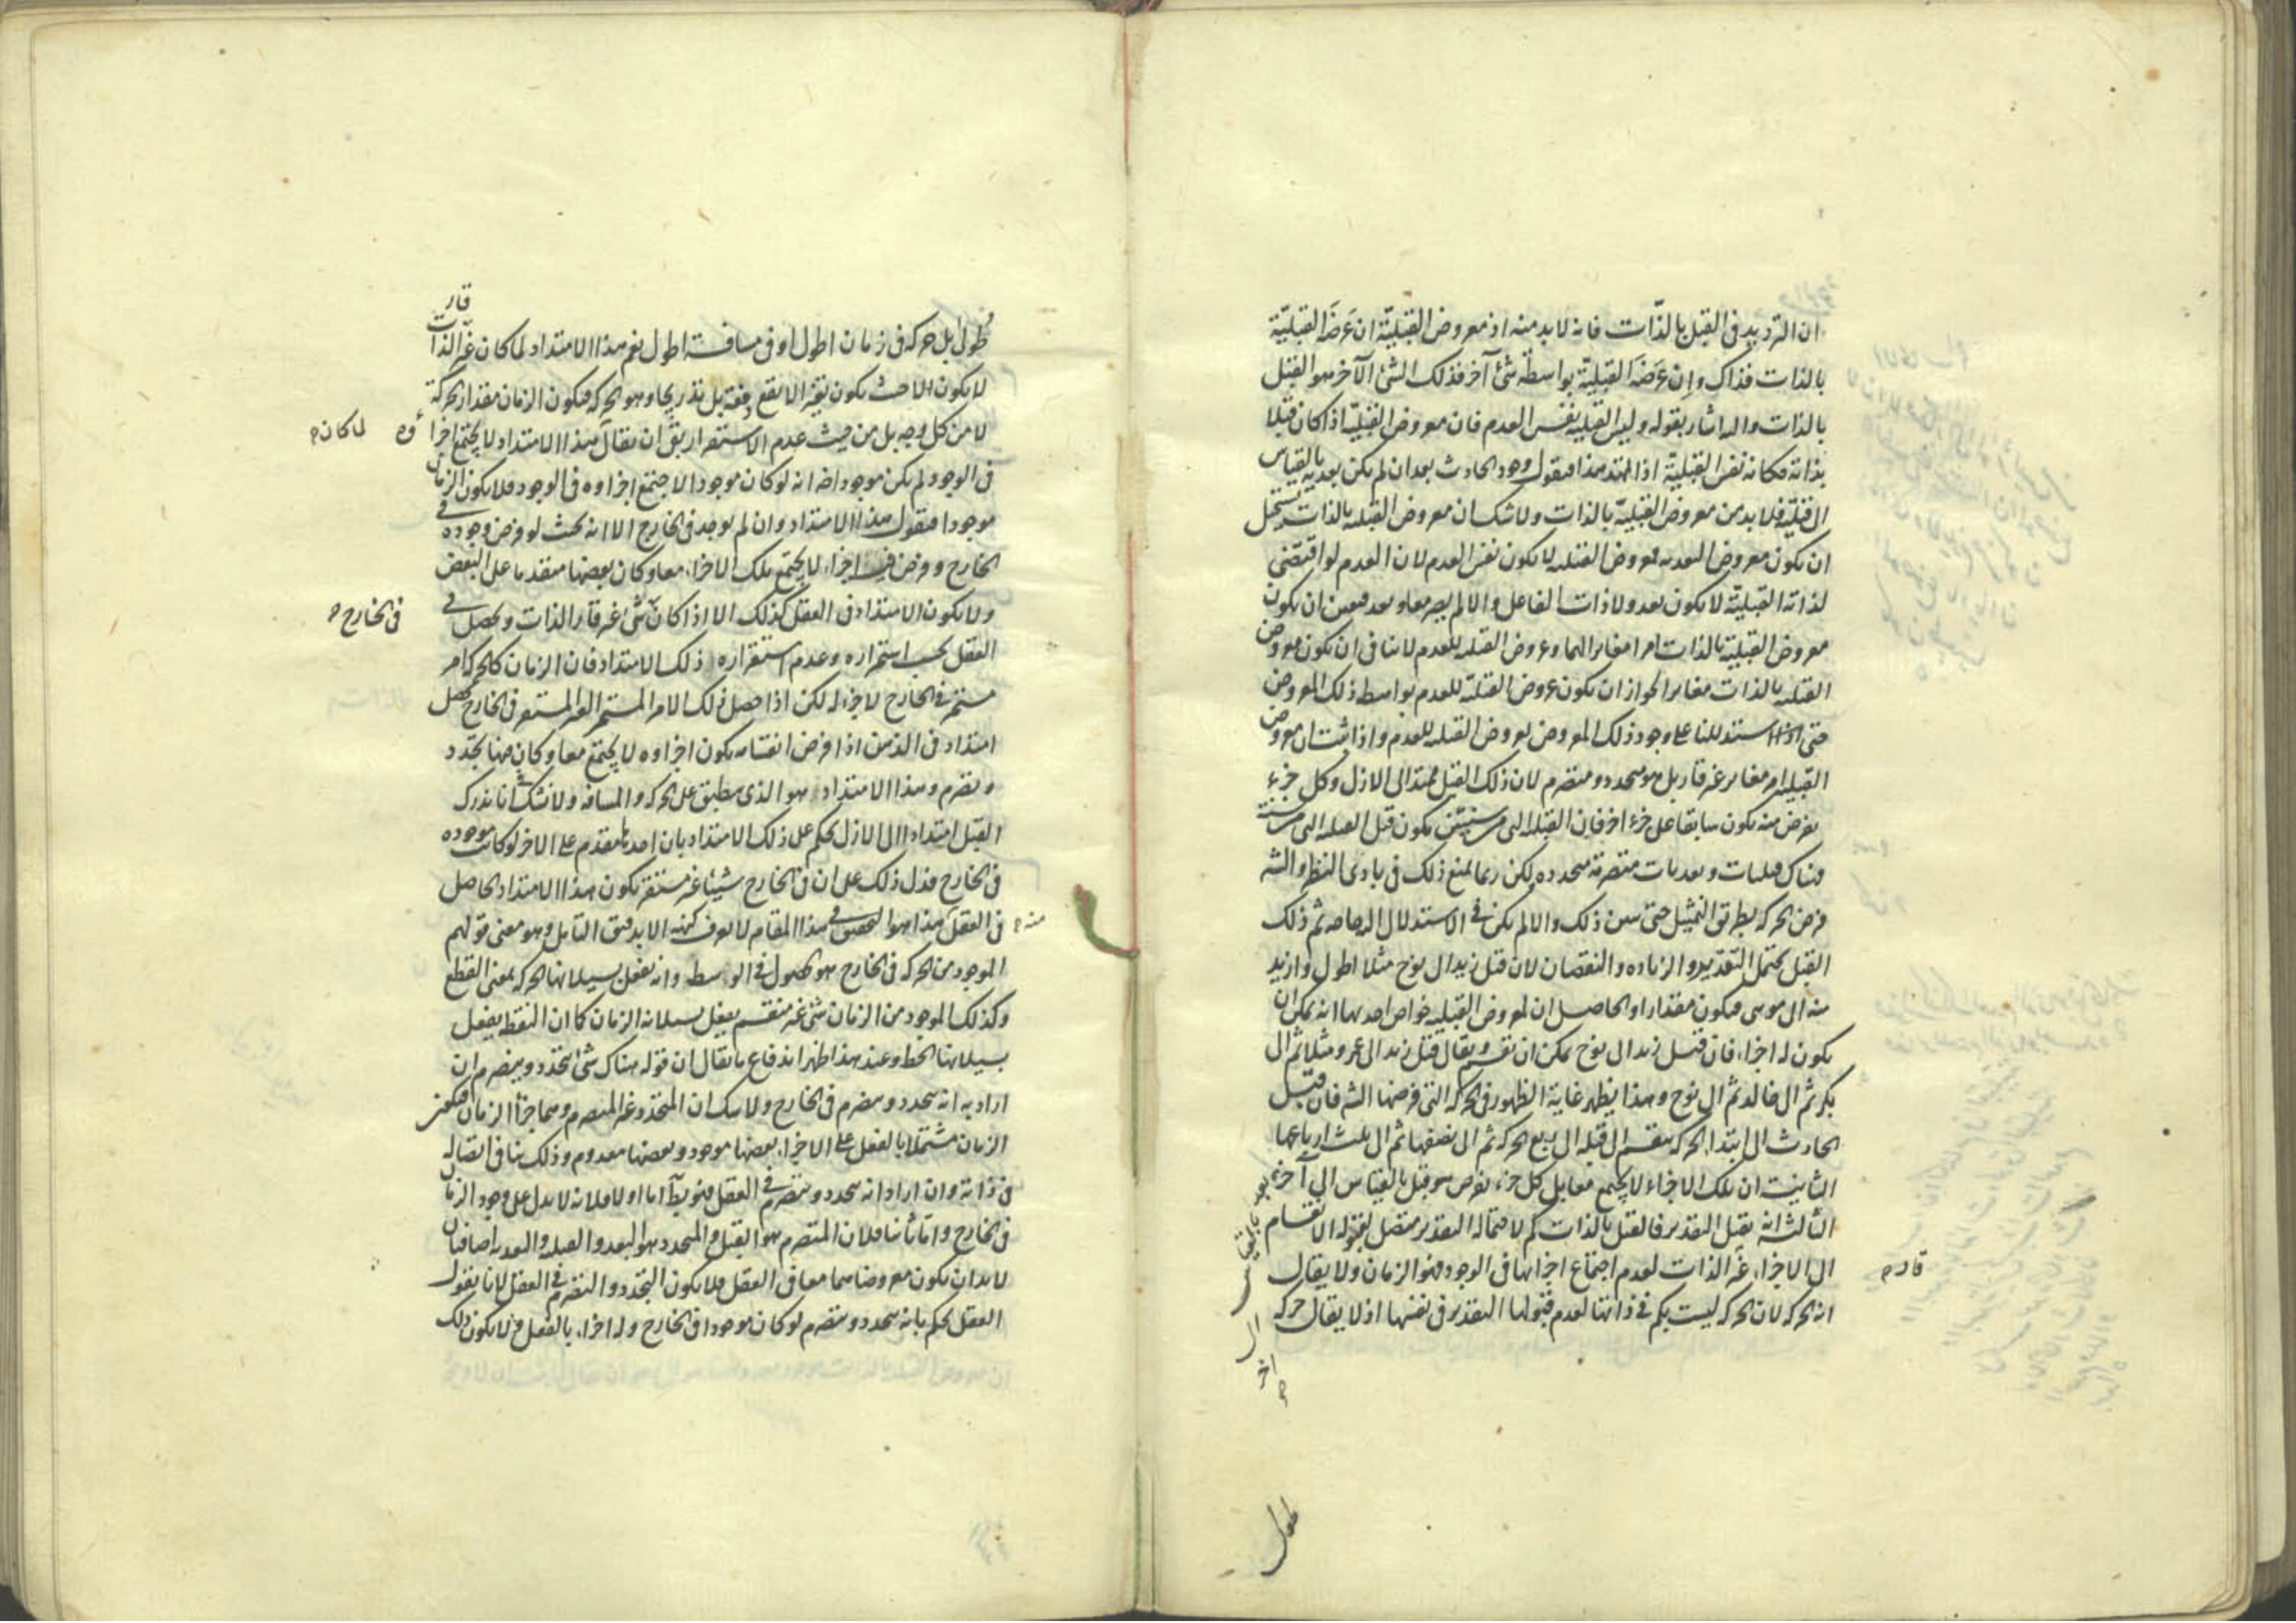 ان الترديد فى القبل بالذّات فانه لا بد منه اذ معروض القبليّة ان عَرَضَ القبليّة
بالذات فذاك وإن عَرَضَ القبليّة بواسطة شئ آخر فذلك الشئ الآخر هو القبل
بالذات واليه اشار بقوله وليس القبلية نفس العدم فان معروض القبليّة اذا كان قبلا
بذاته فكانه نفس القبليّة اذا تمهد هذا فنقول وجود الحادث بعد ان لم يكن بعديه بالقياس
الى قبليّة فلا بد من معروض القبليّة بالذات ولا شك ان معروض القبليه بالذات يستحيل
ان يكون معروض البعديه فمعروض القبليه لا يكون نفس العدم لان العدم لو اقتضى
لذاته القبليّة لا يكون بعد ولا ذات الفاعل والا لم يصر مع او بعد فتعين ان يكون
معروض القبلية بالذات امرا مغايرا لهما وعروض القبليه للعدم لا ينافى ان يكون معروض
القبليه بالذات مغايرا لجواز ان يكون عروض القبليّة للعدم بواسطه ذلك المعروض
حتى اذا استدللنا على وجود ذلك المعروض بعروض القبليه للعدم واذا ثبت ان معروض
القبليه امر مغاير غير قار بل هو متجدد ومتصرم لان ذلك القبل ممتد الى الازل وكل جزء
يفرض منه يكون سابقا على جزء اخر فان القبليه التى من سنتين يكون قبل القبليه التى من سنة
فهناك قبليات وبعديات متصرمة متجدده لكن ربما يمنع ذلك فى بادى النظر والشيخ
فرض الحركه بطريق التمثيل حتى يتبين ذلك والا لم يكن فى الاستدلال اليها حاجه ثم ذلك
القبل يحتمل التقدير والزياده والنقصان لان قبل زيد الى نوح مثلا اطول وازيد
منه الى موسى فيكون مقدارا والحاصل ان لمعروض القبليه خواص احديها انه يمكن ان
يكون له اجزاء فان قبل زيد الى نوح يمكن ان يقسم ويقال قبل زيد الى عمرو مثلا ثم الى
بكر ثم الى خالد ثم الى نوح وهذا يظهر غاية الظهور فى الحركه التى فرضها الشيخ فان قبل
الحادث الى ابتداء الحركه ينقسم الى قبله الى ربع الحركه ثم الى نصفها ثم الى ثلث ارباعها
الثانيه ان تلك الاجزاء لا يجتمع معا بل كل جزء يفرض هو قبل بالقياس الى آخر بعد بالقياس الى اخر
الثالثه انه يقبل التقدير فالقبل بالذات كم لاحتماله التقدير متصل لقبوله الانقسام
الى الاجزاء غير الذات لعدم اجتماع اجزائها فى الوجود فهو الزمان ولا يقال
قار
انه الحركه لان الحركه ليست بكم فى ذاتها لعدم قبولها التقدير فى نفسها اذ لا يقال حركه
اطول
اطول بل حركه فى زمان اطول او فى مسافة اطول نعم هذا الامتداد لما كان غير قار الذات
لا يكون الا حيث يكون تغير لا يقع دفعة بل تدريجا وهو الحركه فيكون الزمان مقدار الحركة
لا من كل وجه بل من حيث عدم الاستقرار بقى ان يقال هذا الامتداد لا يجتمع اجزاؤه لما كان
فى الوجود لم يكن موجودا ضرورة انه لو كان موجودا لاجتمع اجزاوه فى الوجود فلا يكون الزمان
موجودا فنقول هذا الامتداد وان لم يوجد فى الخارج الا انه بحيث لو فرض وجوده فى
الخارج وفرض فيه اجزاء لا يجتمع تلك الاجزاء معا وكان بعضها متقدما على البعض
ولا يكون الامتداد فى العقل كذلك الا اذا كان فى الخارج شئ غير قار الذات ويحصل فى
العقل بحسب استمراره وعدم استقراره ذلك الامتداد فان الزمان كالحركه امر
مستمر فى الخارج لا جزء له لكن اذا حصل ذلك الامر المستمر الغير المستقر فى الخارج يحصل
امتداد فى الذهن اذا فرض انقسامه يكون اجزاوه لا يجتمع معا وكان فيها تجدد
وتصرم وهذا الامتداد هو الذى ينطبق على الحركه والمسافه ولا شك انا ندرك
القبل امتدادا الى الازل نحكم على ذلك الامتداد بان احد ما متقدم على الاخر لو كانت موجوده
فى الخارج فدل ذلك على ان فى الخارج شيئا غير مستقر يكون هذا الامتداد الحاصل
فى العقل منه هذا هو التحقيق فى هذا المقام لا يعرف كنهه الا بدقيق التامل وهو معنى قولهم
الموجود من الحركه فى الخارج هو الحصول فى الوسط وانه يفعل بسيلانها الحركه بمعنى القطع
وكذلك الموجود من الزمان شئ غير منقسم يفعل بسيلانه الزمان كما ان النقطه يفعل
بسيلانها الخط وعند هذا ظهر اندفاع ما يقال ان قوله هناك شئ يتجدد ويتصرم ان
اراد به انه يتجدد ويتصرم فى الخارج ولا شك ان المتجدد غير المتصرم وهما جزأ الزمان فيكون
الزمان مشتملا بالفعل على الاجزاء بعضها موجود وبعضها معدوم وذلك ينافى اتصاله
فى ذاته وان اراد انه يتجدد ويتصرم فى العقل فهو بط اما اولا فلانه لا يدل على وجود الزمان
فى الخارج واما ثانيا فلان المتصرم هو القبل والمتجدد هو البعد والقبليه والبعديه اضافتان
لا بد ان يكون معروضاهما معا فى العقل فلا يكون التجدد والتصرم فى العقل لانا نقول
العقل يحكم بانه يتجدد ويتصرم لو كان موجودا فى الخارج وله اجزاء بالفعل فلا يكون ذلك